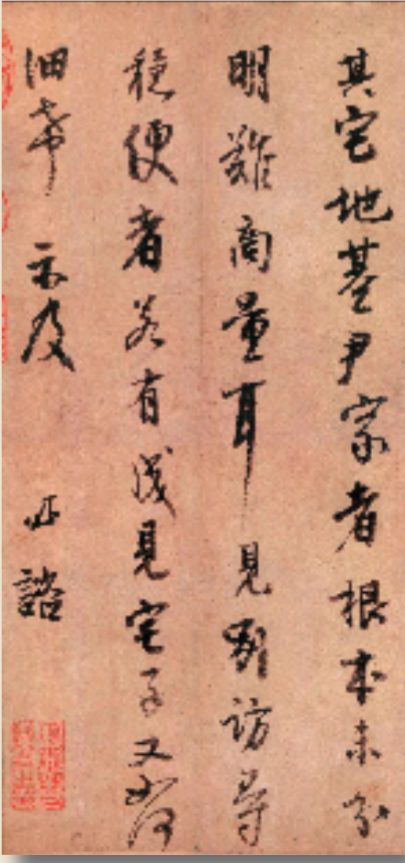 其宅地基尹家者根本未分
明難商量耳見別訪尋
穩便者若有見宅子又如何
細希示及諮